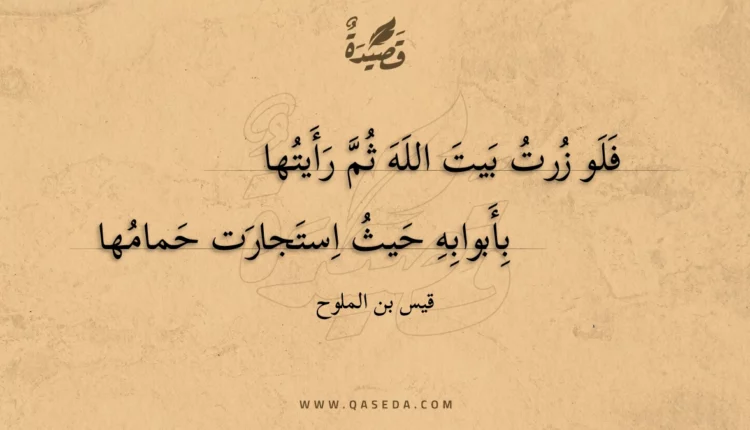 قَصِيْدَةٌ
فَلَو زُرتُ بَيتَ اللَهَ ثُمَّ رَأَيتُها
بِأَبوابِهِ حَيثُ اِستَجارَت حَمامُها
قيس بن الملوح
WWW.QASEDA.COM